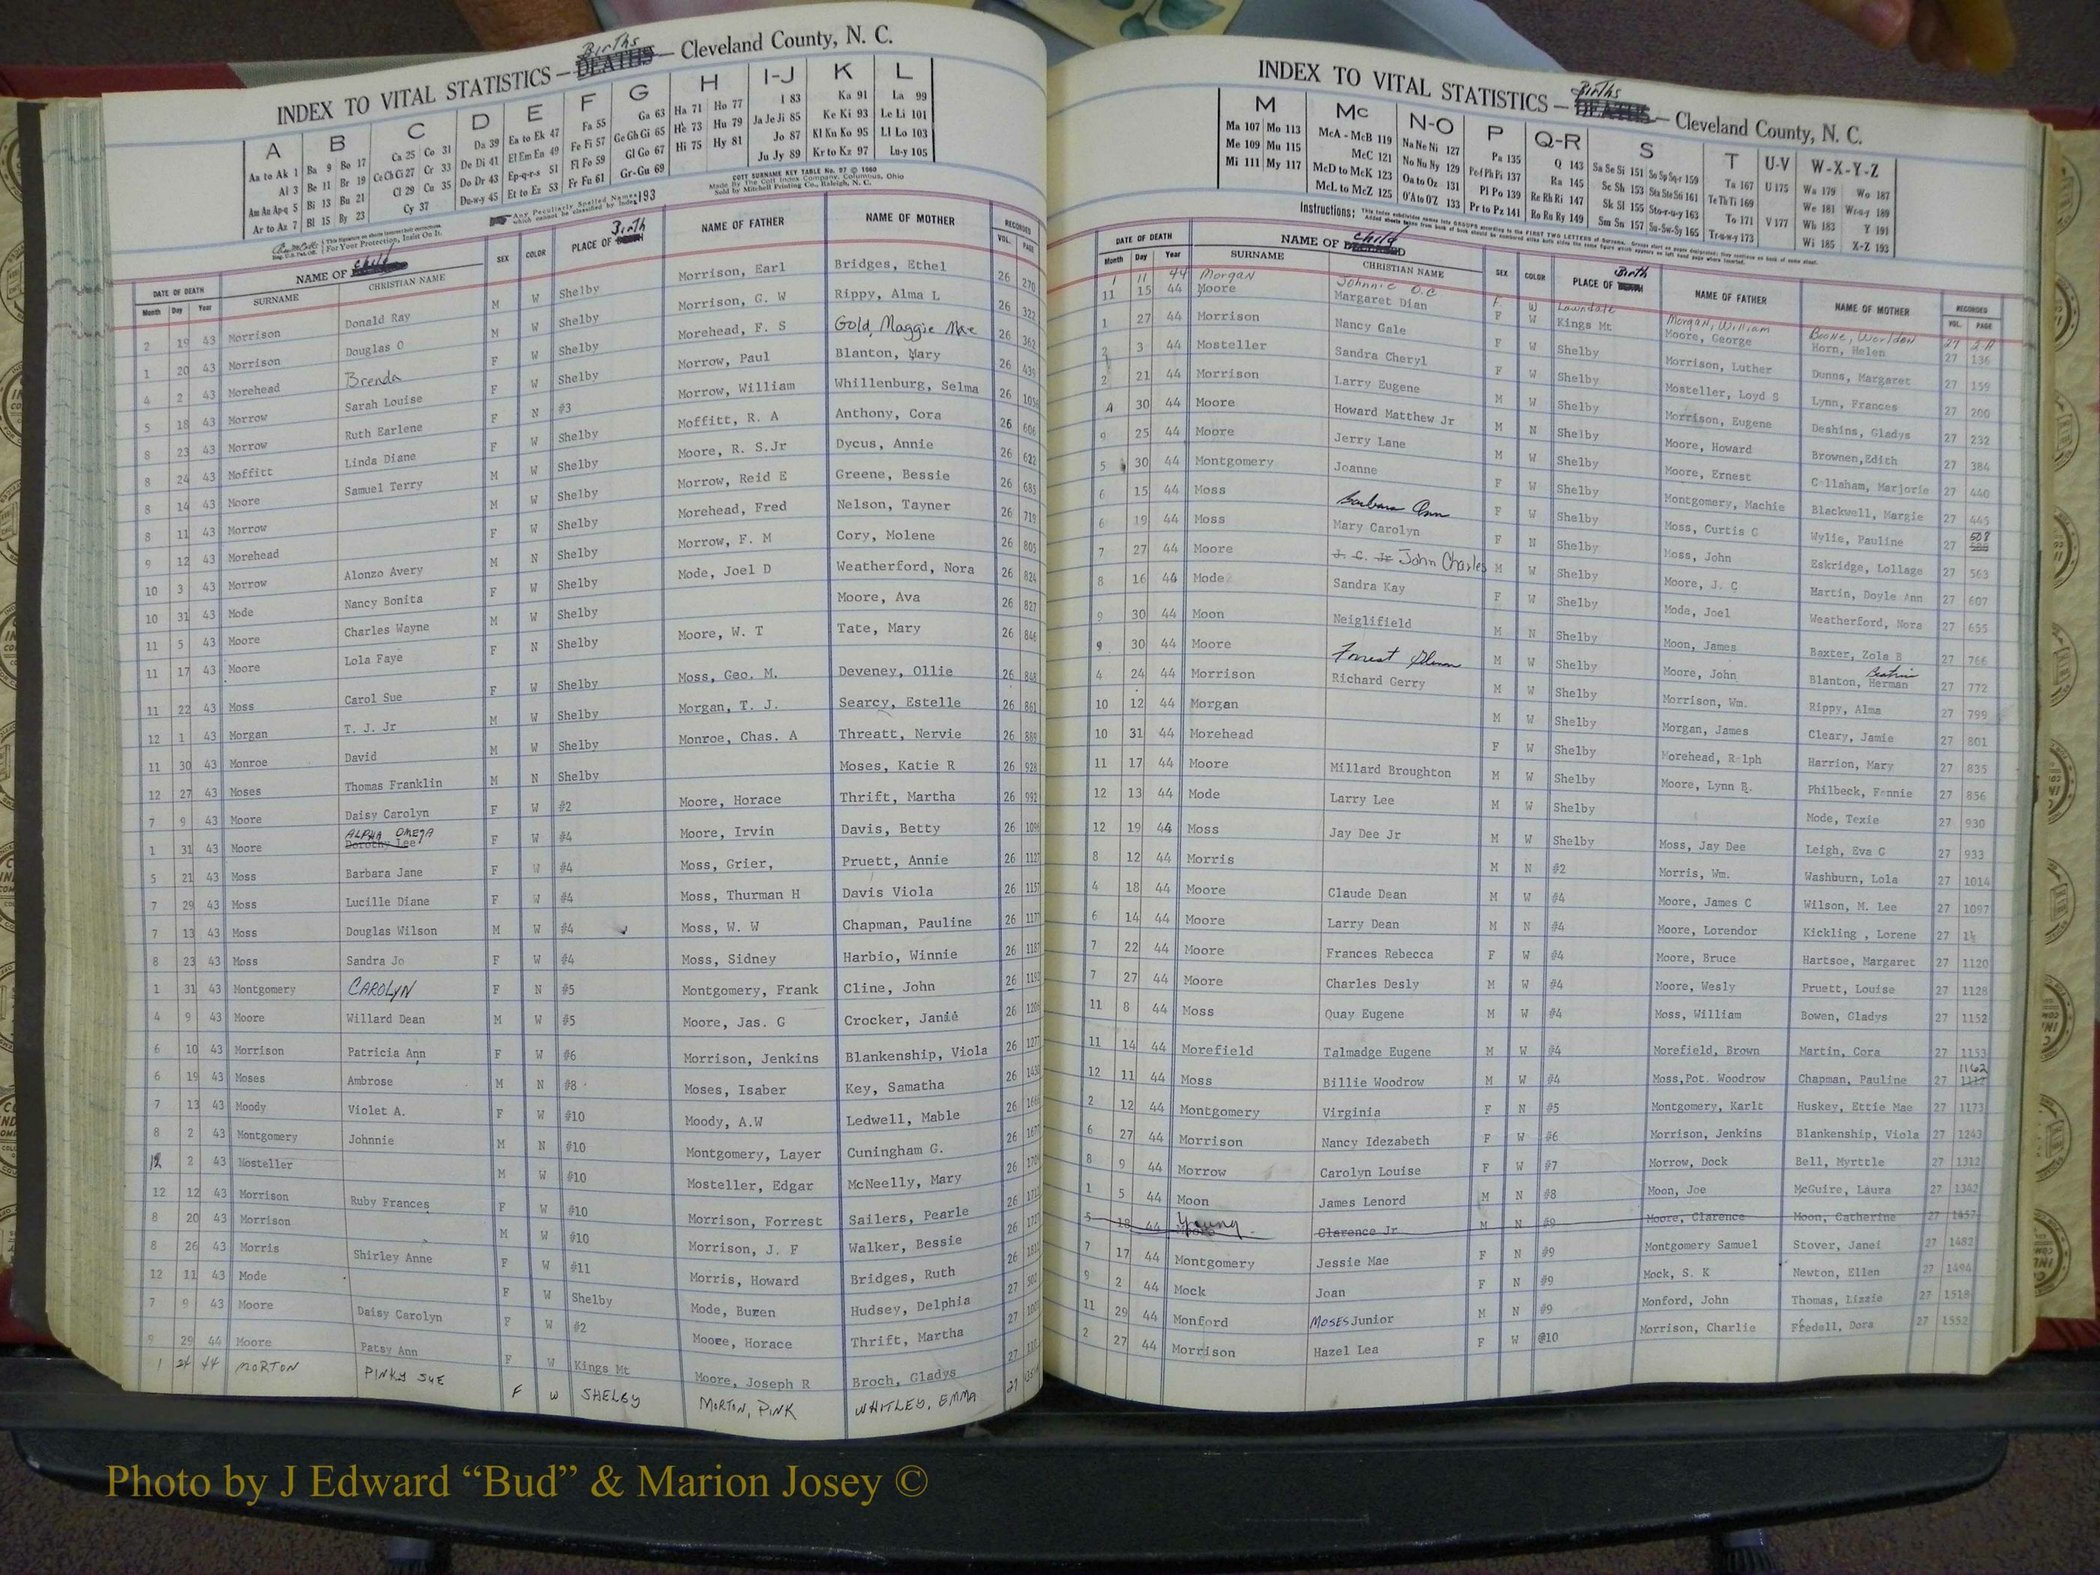 INDEX TO VITAL STATISTICS — Births DEATHS — Cleveland County, N. C.
A B C D E F G H I-J K L
Aa to Ak 1 Ba 9 Bo 17 Ca 25 Co 31 Da 39 Ea to Ek 47 Fa 55 Ga 63 Ha 71 Ho 77 I 83 Ka 91 La 99
Al 3 Be 11 Br 19 Ce Ch Ci 27 Cr 33 De Di 41 El Em En 49 Fe Fi 57 Ge Gh Gi 65 He 73 Hu 79 Ja Je Ji 85 Ke Ki 93 Le Li 101
Am An Ap-q 5 Bi 13 Bu 21 Cl 29 Cu 35 Do Dr 43 Ep-q-r-s 51 Fl Fo 59 Gl Go 67 Hi 75 Hy 81 Jo 87 Kl Kn Ko 95 Ll Lo 103
Ar to Az 7 Bl 15 By 23 Cy 37 Du-w-y 45 Et to Ez 53 Fr Fu 61 Gr-Gu 69 Ju Jy 89 Kr to Kz 97 Lu-y 105
COTT SURNAME KEY TABLE No. 97 © 1960
Made By The Cott Index Company, Columbus, Ohio
Sold by Mitchell Printing Co., Raleigh, N. C.
Any Peculiarly Spelled Names which cannot be classified by Index 193
For Your Protection, Insist On It.
DATE OF DEATH NAME OF Child SEX COLOR PLACE OF Birth NAME OF FATHER NAME OF MOTHER RECORDED
Month Day Year SURNAME CHRISTIAN NAME VOL. PAGE
2 19 43 Morrison Donald Ray M W Shelby Morrison, Earl Bridges, Ethel 26 270
1 20 43 Morrison Douglas O M W Shelby Morrison, G. W Rippy, Alma L 26 322
4 2 43 Morehead Brenda F W Shelby Morehead, F. S Gold, Maggie Mae 26 362
5 18 43 Morrow Sarah Louise F W Shelby Morrow, Paul Blanton, Mary 26 439
8 23 43 Morrow Ruth Earlene F N #3 Morrow, William Whillenburg, Selma 26
8 24 43 Moffitt Linda Diane F W Shelby Moffitt, R. A Anthony, Cora 26 606
8 14 43 Moore Samuel Terry M W Shelby Moore, R. S.Jr Dycus, Annie 26 622
8 11 43 Morrow M W Shelby Morrow, Reid E Greene, Bessie 26 685
9 12 43 Morehead F W Shelby Morehead, Fred Nelson, Tayner 26 719
10 3 43 Morrow Alonzo Avery M N Shelby Morrow, F. M Cory, Molene 26 805
10 31 43 Mode Nancy Bonita F W Shelby Mode, Joel D Weatherford, Nora 26 824
11 5 43 Moore Charles Wayne M W Shelby Moore, Ava 26 827
11 17 43 Moore Lola Faye F N Shelby Moore, W. T Tate, Mary 26 846
11 22 43 Moss Carol Sue F W Shelby Moss, Geo. M. Deveney, Ollie 26 848
12 1 43 Morgan T. J. Jr M W Shelby Morgan, T. J. Searcy, Estelle 26 861
11 30 43 Monroe David M W Shelby Monroe, Chas. A Threatt, Nervie 26 889
12 27 43 Moses Thomas Franklin M N Shelby Moses, Katie R 26 928
7 9 43 Moore Daisy Carolyn F W #2 Moore, Horace Thrift, Martha 26 992
1 31 43 Moore ALPHA OMEGA Dorothy Lee F W #4 Moore, Irvin Davis, Betty 26
5 21 43 Moss Barbara Jane F W #4 Moss, Grier, Pruett, Annie 26
7 29 43 Moss Lucille Diane F W #4 Moss, Thurman H Davis Viola 26
7 13 43 Moss Douglas Wilson M W #4 Moss, W. W Chapman, Pauline 26
8 23 43 Moss Sandra Jo F W #4 Moss, Sidney Harbio, Winnie 26
1 31 43 Montgomery CAROLYN F N #5 Montgomery, Frank Cline, John 26
4 9 43 Moore Willard Dean M W #5 Moore, Jas. G Crocker, Janie 26
6 10 43 Morrison Patricia Ann F W #6 Morrison, Jenkins Blankenship, Viola 26
6 19 43 Moses Ambrose M N #8 Moses, Isaber Key, Samatha 26
7 13 43 Moody Violet A. F W #10 Moody, A.W Ledwell, Mable 26
8 2 43 Montgomery Johnnie M N #10 Montgomery, Layer Cuningham G. 26
12 2 43 Mosteller M W #10 Mosteller, Edgar McNeelly, Mary 26
12 12 43 Morrison Ruby Frances F W #10 Morrison, Forrest Sailers, Pearle 26
8 20 43 Morrison M W #10 Morrison, J. F Walker, Bessie 26
8 26 43 Morris Shirley Anne F W #11 Morris, Howard Bridges, Ruth 26
12 11 43 Mode F W Shelby Mode, Buren Hudsey, Delphia 27
7 9 43 Moore Daisy Carolyn F W #2 Moore, Horace Thrift, Martha 27
9 29 44 Moore Patsy Ann F W Kings Mt Moore, Joseph R Broch, Gladys 27
1 24 44 MORTON PINKY SUE F W SHELBY MORTON, PINK WHITLEY, EMMA 27
INDEX TO VITAL STATISTICS — Births DEATHS — Cleveland County, N. C.
M Mc N-O P Q-R S T U-V W-X-Y-Z
Ma 107 Mo 113 McA - McB 119 Na Ne Ni 127 Pa 135 Q 143 Sa Se Si 151 So Sp Sq-r 159 Ta 167 U 175 Wa 179 Wo 187
Me 109 Mu 115 McC 121 No Nu Ny 129 Pe-f Ph Pi 137 Ra 145 Sc Sh 153 Sta Ste Sti 161 Te Th Ti 169 We 181 Wr-u-y 189
Mi 111 My 117 McD to McK 123 Oa to Oz 131 Pl Po 139 Re Rh Ri 147 Sk Sl 155 Sto-r-u-y 163 To 171 V 177 Wh 183 Y 191
McL to McZ 125 O'A to O'Z 133 Pr to Pz 141 Ro Ru Ry 149 Sm Sn 157 Su-Sw-Sy 165 Tr-u-w-y 173 Wi 185 X-Z 193
DATE OF DEATH NAME OF Child DECEASED SEX COLOR PLACE OF Birth NAME OF FATHER NAME OF MOTHER RECORDED
Month Day Year SURNAME CHRISTIAN NAME VOL. PAGE
1 11 44 Morgan Johnnie O.C F W Lawndale Morgan, William Boone, Worlden 27
11 15 44 Moore Margaret Dian F W Kings Mt Moore, George Horn, Helen 27 136
1 27 44 Morrison Nancy Gale F W Shelby Morrison, Luther Dunns, Margaret 27 159
2 3 44 Mosteller Sandra Cheryl F W Shelby Mosteller, Loyd S Lynn, Frances 27 200
2 21 44 Morrison Larry Eugene M W Shelby Morrison, Eugene Deshins, Gladys 27 232
4 30 44 Moore Howard Matthew Jr M N Shelby Moore, Howard Brownen,Edith 27 384
9 25 44 Moore Jerry Lane M W Shelby Moore, Ernest Callaham, Marjorie 27 440
5 30 44 Montgomery Joanne F W Shelby Montgomery, Machie Blackwell, Margie 27 445
6 15 44 Moss Barbara Ann F W Shelby Moss, Curtis C Wylie, Pauline 27 508
6 19 44 Moss Mary Carolyn F N Shelby Moss, John Eskridge, Lollage 27 563
7 27 44 Moore J. C. Jr John Charles M W Shelby Moore, J. C Martin, Doyle Ann 27 607
8 16 44 Mode Sandra Kay F W Shelby Mode, Joel Weatherford, Nora 27 655
9 30 44 Moon Neiglifield M N Shelby Moon, James Baxter, Zola B 27 766
9 30 44 Moore Forrest M W Shelby Moore, John Blanton, Herman 27 772
4 24 44 Morrison Richard Gerry M W Shelby Morrison, Wm. Rippy, Alma 27 799
10 12 44 Morgan M W Shelby Morgan, James Cleary, Jamie 27 801
10 31 44 Morehead F W Shelby Morehead, Ralph Harrion, Mary 27 835
11 17 44 Moore Millard Broughton M W Shelby Moore, Lynn B. Philbeck, Fannie 27 856
12 13 44 Mode Larry Lee M W Shelby Mode, Texie 27 930
12 19 44 Moss Jay Dee Jr M W Shelby Moss, Jay Dee Leigh, Eva G 27 933
8 12 44 Morris M N #2 Morris, Wm. Washburn, Lola 27 1014
4 18 44 Moore Claude Dean M W #4 Moore, James C Wilson, M. Lee 27 1097
6 14 44 Moore Larry Dean M N #4 Moore, Lorendor Kickling , Lorene 27
7 22 44 Moore Frances Rebecca F W #4 Moore, Bruce Hartsoe, Margaret 27 1120
7 27 44 Moore Charles Desly M W #4 Moore, Wesly Pruett, Louise 27 1128
11 8 44 Moss Quay Eugene M W #4 Moss, William Bowen, Gladys 27 1152
11 14 44 Morefield Talmadge Eugene M W #4 Morefield, Brown Martin, Cora 27 1153
12 11 44 Moss Billie Woodrow M W #4 Moss,Pot. Woodrow Chapman, Pauline 27 1162
2 12 44 Montgomery Virginia F N #5 Montgomery, Karlt Huskey, Ettie Mae 27 1173
6 27 44 Morrison Nancy Idezabeth F W #6 Morrison, Jenkins Blankenship, Viola 27 1243
8 9 44 Morrow Carolyn Louise F W #7 Morrow, Dock Bell, Myrttle 27 1312
1 5 44 Moon James Lenord M N #8 Moon, Joe McGuire, Laura 27 1342
5 18 44 Young Clarence Jr M N #9 Moore, Clarence Moon, Catherine 27 1457
7 17 44 Montgomery Jessie Mae F N #9 Montgomery Samuel Stover, Janei 27 1482
9 2 44 Mock Joan F N #9 Mock, S. K Newton, Ellen 27 1494
11 29 44 Monford MOSES Junior M N #9 Monford, John Thomas, Lizzie 27 1518
2 27 44 Morrison Hazel Lea F W #10 Morrison, Charlie Fredell, Dora 27 1552
Photo by J Edward “Bud” & Marion Josey ©